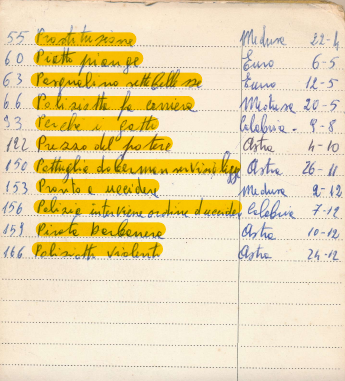 55 Prostituzione Medusa 22-4
60 Piatto piange Euro 6-5
63 Pasqualino settebellezze Euro 12-5
66 Poliziotte fa carriera Medusa 20-5
93 Perché i gatti Calabria 9-8
122 Prezzo del potere Astra 4-10
150 Pattuglia dobermann servizio legge Astra 26-11
153 Pronto a uccidere Medusa 2-12
156 Polizia interviene ordine d'uccidere Calabria 7-12
159 Pirata Barbanera Astra 10-12
166 Poliziotti violenti Astra 24-12